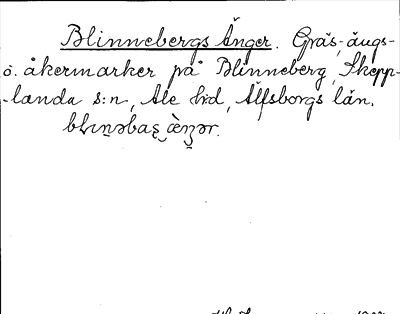 Blinnebergs Änger. Gräs-, ängs-
o. åkermarker på Blinneberg, Skepp-
-landa s:n, Ale hd, Älfsborgs län.